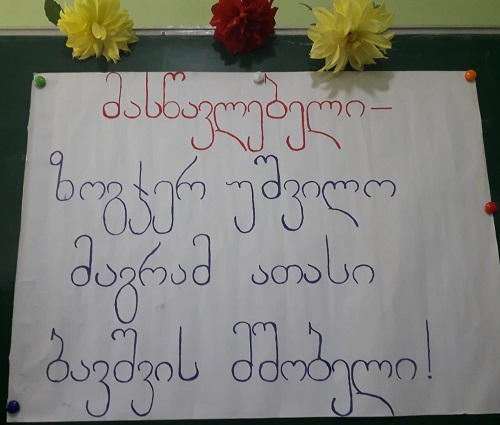 მასწავლებელი—
ზოგჯერ უშვილო
მაგრამ ათასი
ბავშვის მშობელი!